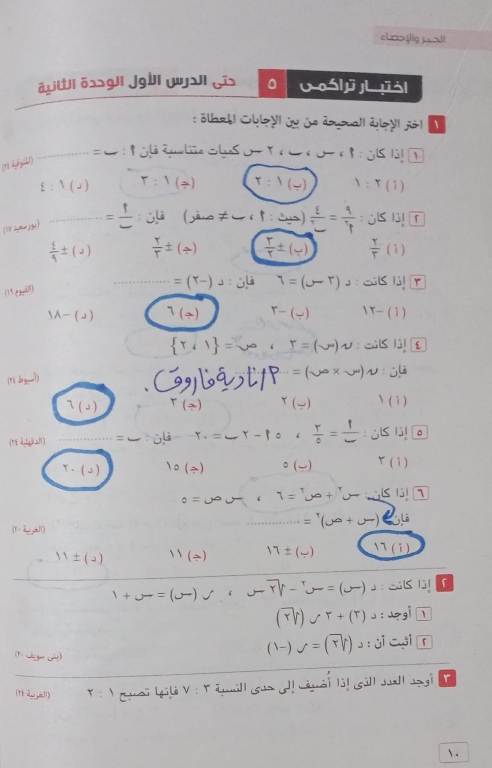 الجبر والإحصاء
اختبار تراكمى ٥ حتى الدرس الأول الوحدة الثانية
١ اختر الإجابة الصحيحة من بين الإجابات المعطاة :
١ إذا كان : ٩ ، س ، ب ، ٢ س كميات متناسبة فإن ٩ : ب =
(أ) ١ : ٢ (ب) ١ : ٢ (ج) ١ : ٣ (د) ١ : ٤
٢ إذا كان : ٩/٢٩ = ٤/ب٢ (حيث : ٩ ، ب ≠ صفر) فإن : ٩/ب =
(أ) ٣/٢ (ب) ± ٣/٢ (ج) ± ٢/٣ (د) ± ٤/٩
٣ إذا كانت : د (٣ س) = ٦ فإن : د (-٢) =
(أ) -١٢ (ب) -٣ (ج) ٦ (د) -١٨
٤ إذا كانت : ن (س) = ٣ ، ص = {١ ، ٢}
فإن : ن (س × ص) =
٢/نادية فاروق.
(أ) ١ (ب) ٢ (ج) ٣ (د) ٦
٥ إذا كان : ٩/ب = ٣/٥ ، ٥ ٩ - ٢ ب = ٢٠ فإن : ب =
(أ) ٢ (ب) ٥ (ج) ١٥ (د) ٢٠
٦ إذا كان : س٢ + ص٢ = ٦ ، س ص = ٥
فإن (س + ص)٢ =
(أ) ١٦ (ب) ± ١٦ (ج) ١١ (د) ± ١١
٢ إذا كانت : د (س) = س٢ - √٢ س ، ر (س) = س + ١
١ أوجد : د (٣) + ٣ ر (√٢)
٢ أثبت أن : د (√٢) = ر (-١)
(بنى سويف ٢٠)
٣ أوجد العدد الذى إذا أضيف إلى حدى النسبة ٣ : ٧ فإنها تصبح ١ : ٢
١٠